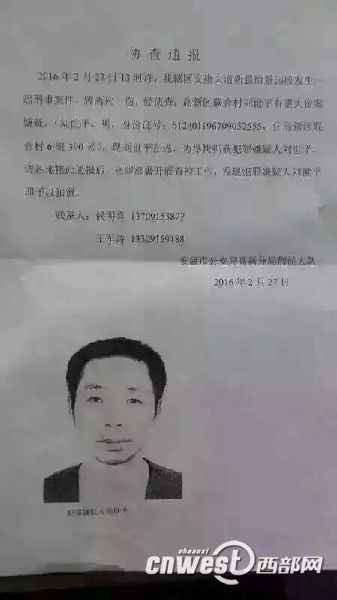 协查通报
2016年2月27日13时许，我辖区安康大道新盛怡景园段发生一
起刑事案件，致两死一伤，经侦查，高新区联合村刘世平有重大作案
嫌疑，（刘世平、男、身份证号： 住高新区联
合村6组390号），现刘世平在逃，为尽快抓获犯罪嫌疑人刘世平，
请各地接此通报后，立即部署开展查控工作，发现犯罪嫌疑人刘世平
即予以扣留。
联系人：
王军涛 13309159188
安康市公安局高新分局刑侦大队
2016年2月27日
犯罪嫌疑人刘世平
shaanxi
cnwest西部网